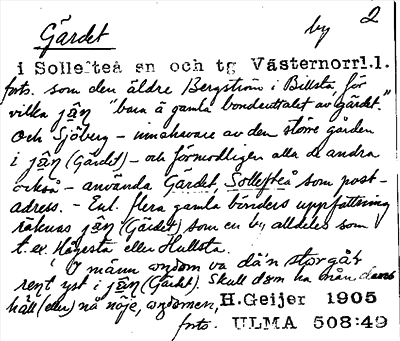 Gärdet by 2
i Sollefteå sn och tg Västernorrl.l.
forts. som den äldre Bergström i Billsta, för
vilka jä̂ṇ "bara ä gamla bondeuttalet av gärdet."
Och Sjöberg – innehavare av den större gården
i jä̂ṇ (Gärdet) – och förmodligen alla de andra
också – använda Gärdet, Sollefteå som post-
adress. – Enl. flera gamla bönders uppfattning
räknas jä̂ṇ (Gärdet) som en by alldeles som
t. ex. Hågesta eller Hullsta.
I männ ongdom va dä'n stor går
rent yst i jä̂ṇ (Gärdet). Skull döm ha nån dans
häll (eller) nå nöje, ongdomen,
H.Geijer 1905
forts. ULMA 508:49